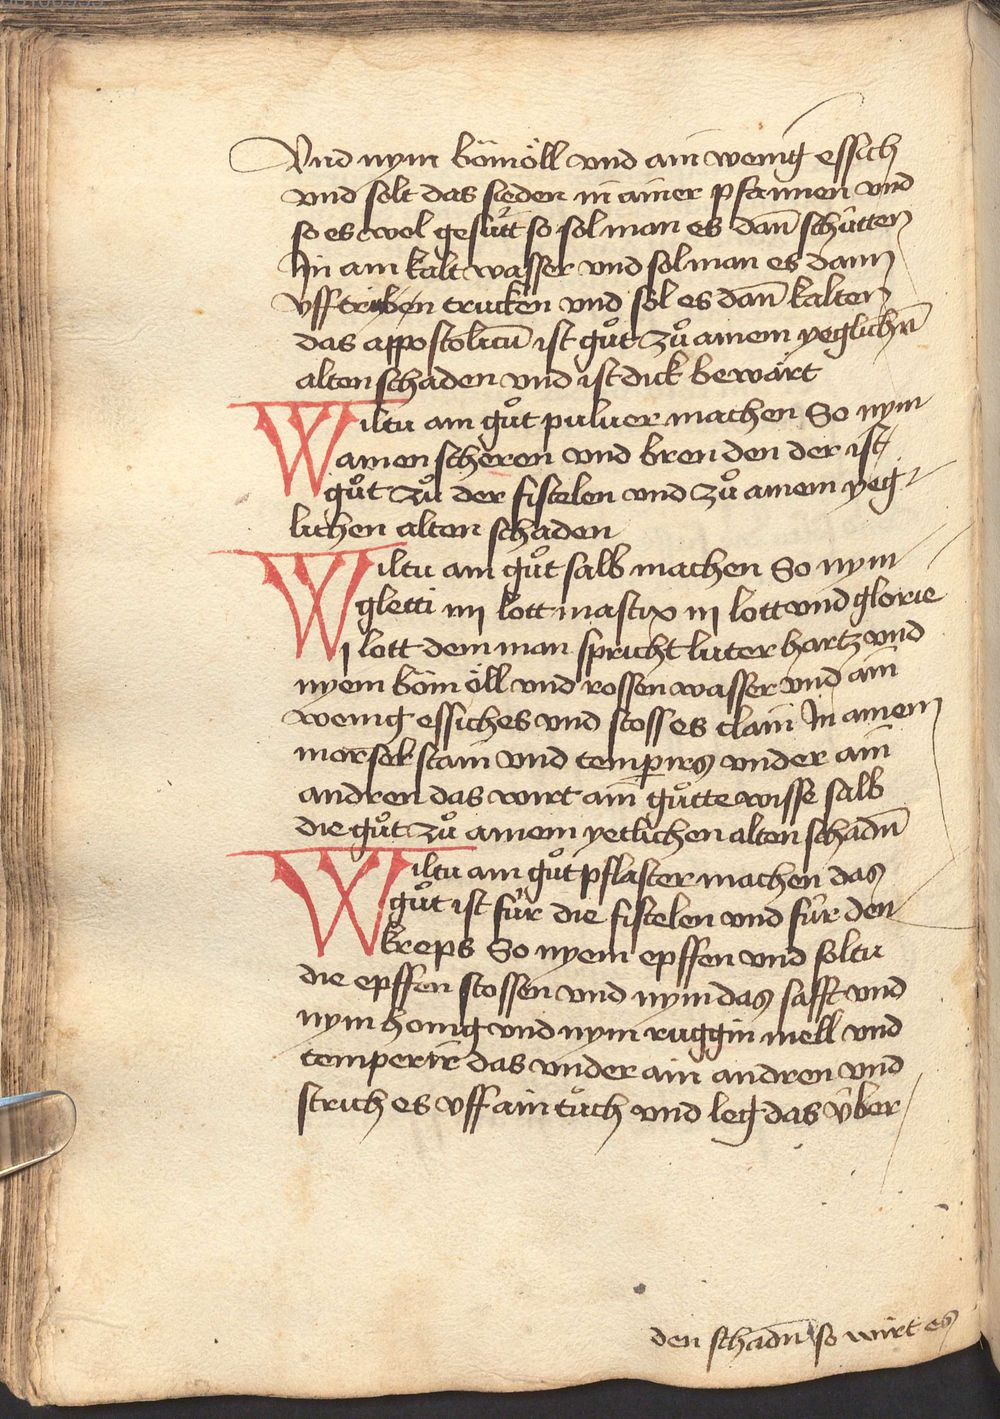 Und nym bömöll vnd ain wenig essich
vnd solt das sieden in ainer pfannen vnd
so es wol gesütt so sol man es dan̄ schütten
In ain kalt wasser vnd sol man es dann
vff triben trucken vnd sol es dan̄ kalten
das appostolicū ist gůt zů ainem yeglichn̄
alten schaden vnd ist dick bewärt
Wiltu ain gůt puluer machen So nym
ainen scheren vnd bren den der ist
gůt zů der fistelen vnd zů ainem yeg
lichen alten schaden
Wiltu ain gůt salb machen So nym
gletti iiij lott mastix iij lott vnd glorie
i lott dem man spricht luter hartz vnd
nyem böm öll vnd rossen wasser vnd ain
wenig essiches vnd stoss es clain In ainem
morsel stain vnd temperirs vnder ain
andren das wirt ain gůtte wisse salb
die gůt zů ainem yetlichen alten schadn̄
Wiltu ain gůt pflaster machen das
gůt ist für die fistelen vnd für den
kreps So nyem epffen vnd soltu
die epffen stossen vnd nym das safft vnd
nym honig vnd nym ruggin mell vnd
temperir das vnder ain andren vnd
strich es vff ain tůch vnd leg das über
den schadn̄ so wirt es